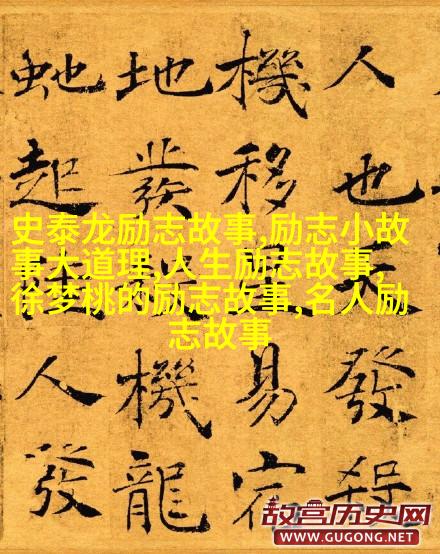 人也天發殺
機移星易宿
地發機龍
虵起人發
史泰龙励志故事,励志小故
事大道理,人生励志故事,
徐梦桃的励志故事,名人励
志故事
故宫历史网
WWW.GUGONG.NET